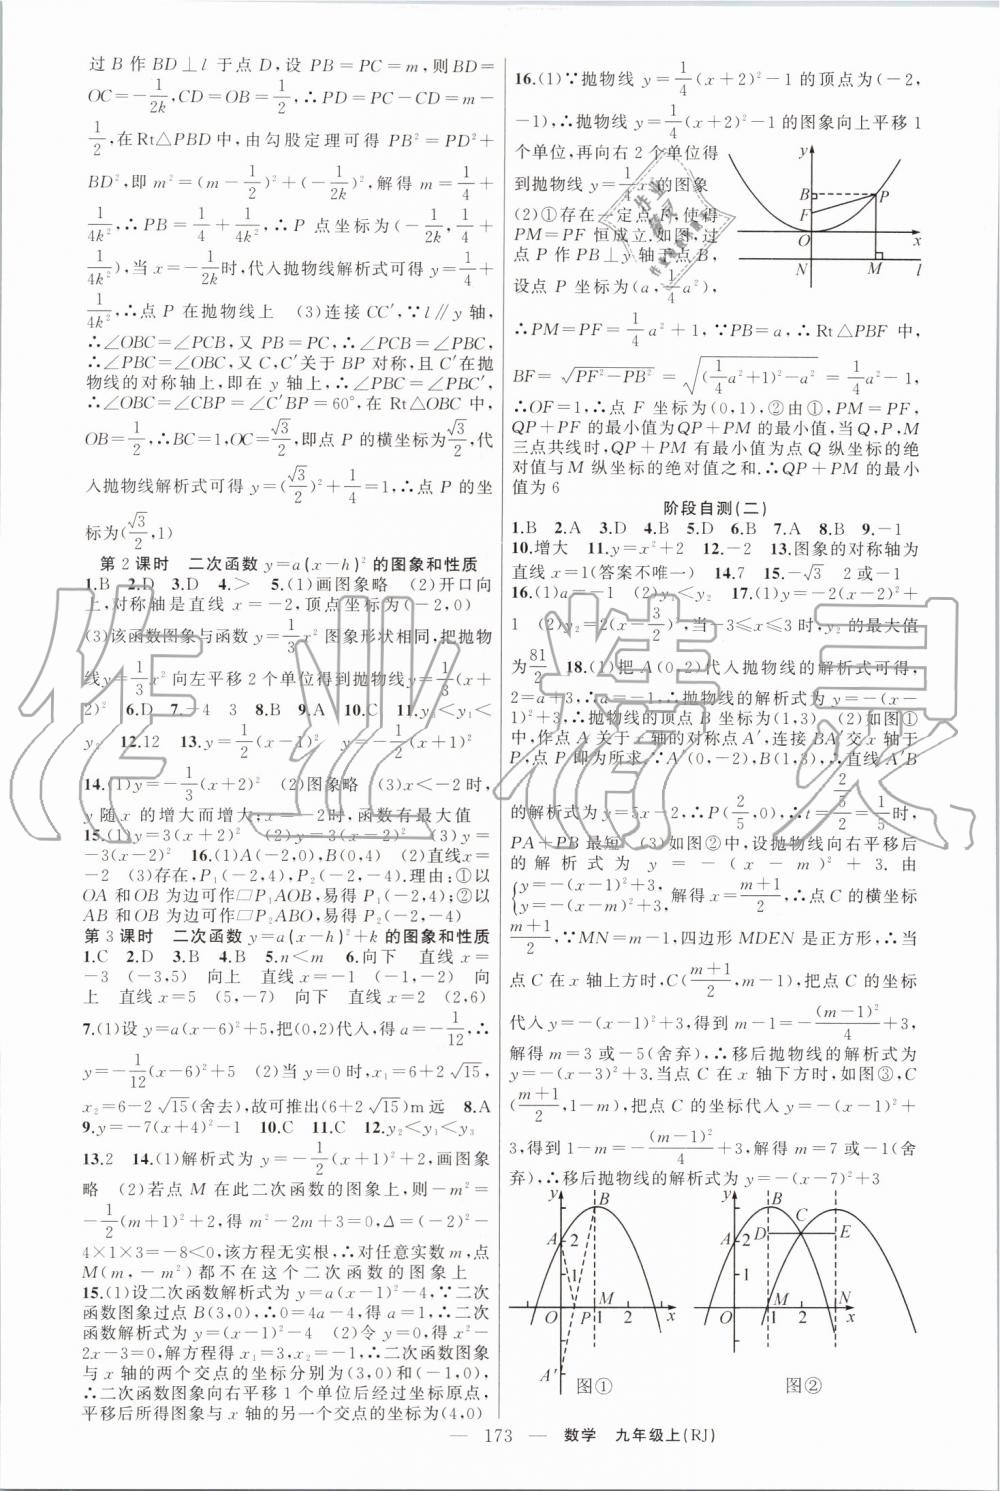 过 B 作 BD⊥l 于点 D,设 PB=PC=m,则 BD=
OC=-1/(2k),CD=OB=1/2,∴PD=PC-CD=m-
1/2,在 Rt△PBD 中,由勾股定理可得 PB²=PD²+
BD²,即 m²=(m-1/2)²+(-1/(2k))²,解得 m=1/4+
1/(4k²),∴PB=1/4+1/(4k²),∴P 点坐标为(-1/(2k),1/4+
1/(4k²)),当 x=-1/(2k)时,代入抛物线解析式可得 y=1/4+
1/(4k²),∴点 P 在抛物线上 (3)连接 CC′,∵l∥y 轴,
∴∠OBC=∠PCB,又 PB=PC,∴∠PCB=∠PBC,
∴∠PBC=∠OBC,又 C,C′关于 BP 对称,且 C′在抛
物线的对称轴上,即在 y 轴上,∴∠PBC=∠PBC′,
∴∠OBC=∠CBP=∠C′BP=60°,在 Rt△OBC 中,
OB=1/2,∴BC=1,OC=√3/2,即点 P 的横坐标为√3/2,代
入抛物线解析式可得 y=(√3/2)²+1/4=1,∴点 P 的坐
标为(√3/2,1)
第 2 课时 二次函数 y=a(x-h)²的图象和性质
1.B 2.D 3.D 4.> 5.(1)画图象略 (2)开口向
上,对称轴是直线 x=-2,顶点坐标为(-2,0)
(3)该函数图象与函数 y=1/3x²图象形状相同,把抛物
线 y=1/3x²向左平移 2 个单位得到抛物线 y=1/3(x+
2)² 6.D 7.-4 3 8.B 9.A 10.C 11.y₃<y₁<
y₂ 12.12 13.y=1/2(x-1)² y=-1/2(x+1)²
14.(1)y=-1/3(x+2)² (2)图象略 (3)x<-2 时,
y 随 x 的增大而增大;x=-2时,函数有最大值
15.(1)y=3(x+2)² (2)y=3(x-2)² (3)y=
-3(x-2)² 16.(1)A(-2,0),B(0,4) (2)直线x=
-2 (3)存在,P₁(-2,4),P₂(-2,-4).理由:①以
OA 和 OB 为边可作▱P₁AOB,易得 P₁(-2,4);②以
AB 和 OB 为边可作▱P₂ABO,易得 P₂(-2,-4)
第 3 课时 二次函数 y=a(x-h)²+k 的图象和性质
1.C 2.D 3.B 4.B 5.n<m 6.向下 直线 x=
-3 (-3,5) 向上 直线 x=-1 (-1,-2) 向
上 直线 x=5 (5,-7) 向下 直线 x=2 (2,6)
7.(1)设 y=a(x-6)²+5,把(0,2)代入,得 a=-1/12,∴
y=-1/12(x-6)²+5 (2)当 y=0 时,x₁=6+2√15,
x₂=6-2√15(舍去),故可推出(6+2√15)m远 8.A
9.y=-7(x+4)²-1 10.C 11.C 12.y₂<y₁<y₃
13.2 14.(1)解析式为 y=-1/2(x+1)²+2,画图象
略 (2)若点 M 在此二次函数的图象上,则-m²=
-1/2(m+1)²+2,得 m²-2m+3=0,Δ=(-2)²-
4×1×3=-8<0,该方程无实根,∴对任意实数 m,点
M(m,-m²)都不在这个二次函数的图象上
15.(1)设二次函数解析式为 y=a(x-1)²-4,∵二次
函数图象过点 B(3,0),∴0=4a-4,得 a=1,∴二次
函数解析式为 y=(x-1)²-4 (2)令 y=0,得 x²-
2x-3=0,解方程得 x₁=3,x₂=-1.∴二次函数图象
与 x 轴的两个交点的坐标分别为(3,0)和(-1,0),
∴二次函数图象向右平移 1 个单位后经过坐标原点,
平移后所得图象与 x 轴的另一个交点的坐标为(4,0)
16.(1)∵抛物线 y=1/4(x+2)²-1 的顶点为(-2,
-1),∴抛物线 y=1/4(x+2)²-1 的图象向上平移 1
个单位,再向右 2 个单位得
到抛物线 y=1/4x²的图象
(2)①存在一定点 F,使得
PM=PF 恒成立.如图,过
点 P 作 PB⊥y 轴于点 B,
设点 P 坐标为(a,1/4a²),
∴PM=PF=1/4a²+1,∵PB=a,∴Rt△PBF 中,
BF=√(PF²-PB²)=√((1/4a²+1)²-a²)=1/4a²-1,
∴OF=1,∴点 F 坐标为(0,1),②由①,PM=PF,
QP+PF 的最小值为QP+PM 的最小值,当Q,P,M
三点共线时,QP+PM 有最小值为点 Q 纵坐标的绝
对值与 M 纵坐标的绝对值之和.∴QP+PM 的最小
值为 6
y
B P
F
O x
N M l
阶段自测(二)
1.B 2.A 3.D 4.B 5.D 6.B 7.A 8.B 9.-1
10.增大 11.y=x²+2 12.-2 13.图象的对称轴为
直线 x=1(答案不唯一) 14.7 15.-√3 2或-1
16.(1)a=-1 (2)y₁<y₂ 17.(1)y=-2(x-2)²+
1 (2)y₂=2(x-3/2)²,当-3≤x≤3时,y₂的最大值
为81/2 18.(1)把 A(0,2)代入抛物线的解析式可得,
2=a+3,∴a=-1,∴抛物线的解析式为 y=-(x-
1)²+3,∴抛物线的顶点 B 坐标为(1,3) (2)如图①
中,作点 A 关于 x 轴的对称点A′,连接 BA′交 x 轴于
P,点 P 即为所求.∵A′(0,-2),B(1,3),∴直线 A′B
的解析式为 y=5x-2,∴P(2/5,0),∴t=(2/5)/2=1/5时,
PA+PB 最短 (3)如图②中,设抛物线向右平移后
的解析式为 y=-(x-m)²+3.由
{y=-(x-1)²+3,
{y=-(x-m)²+3, 解得 x=(m+1)/2,∴点 C 的横坐标
(m+1)/2,∵MN=m-1,四边形 MDEN 是正方形,∴当
点 C 在 x 轴上方时,C((m+1)/2,m-1),把点 C 的坐标
代入 y=-(x-1)²+3,得到 m-1=-(m-1)²/4+3,
解得 m=3 或-5(舍弃),∴移后抛物线的解析式为
y=-(x-3)²+3.当点 C 在 x 轴下方时,如图③,C
((m+1)/2,1-m),把点 C 的坐标代入 y=-(x-1)²+
3,得到 1-m=-(m-1)²/4+3,解得 m=7 或-1(舍
弃),∴移后抛物线的解析式为 y=-(x-7)²+3
y B
A 2
1
M
O P 1 2 x
A′
图①
y B
A 2 D C E
1
M N
O 1 2 x
图②
— 173 — 数学 九年级上(RJ)
作业精灵